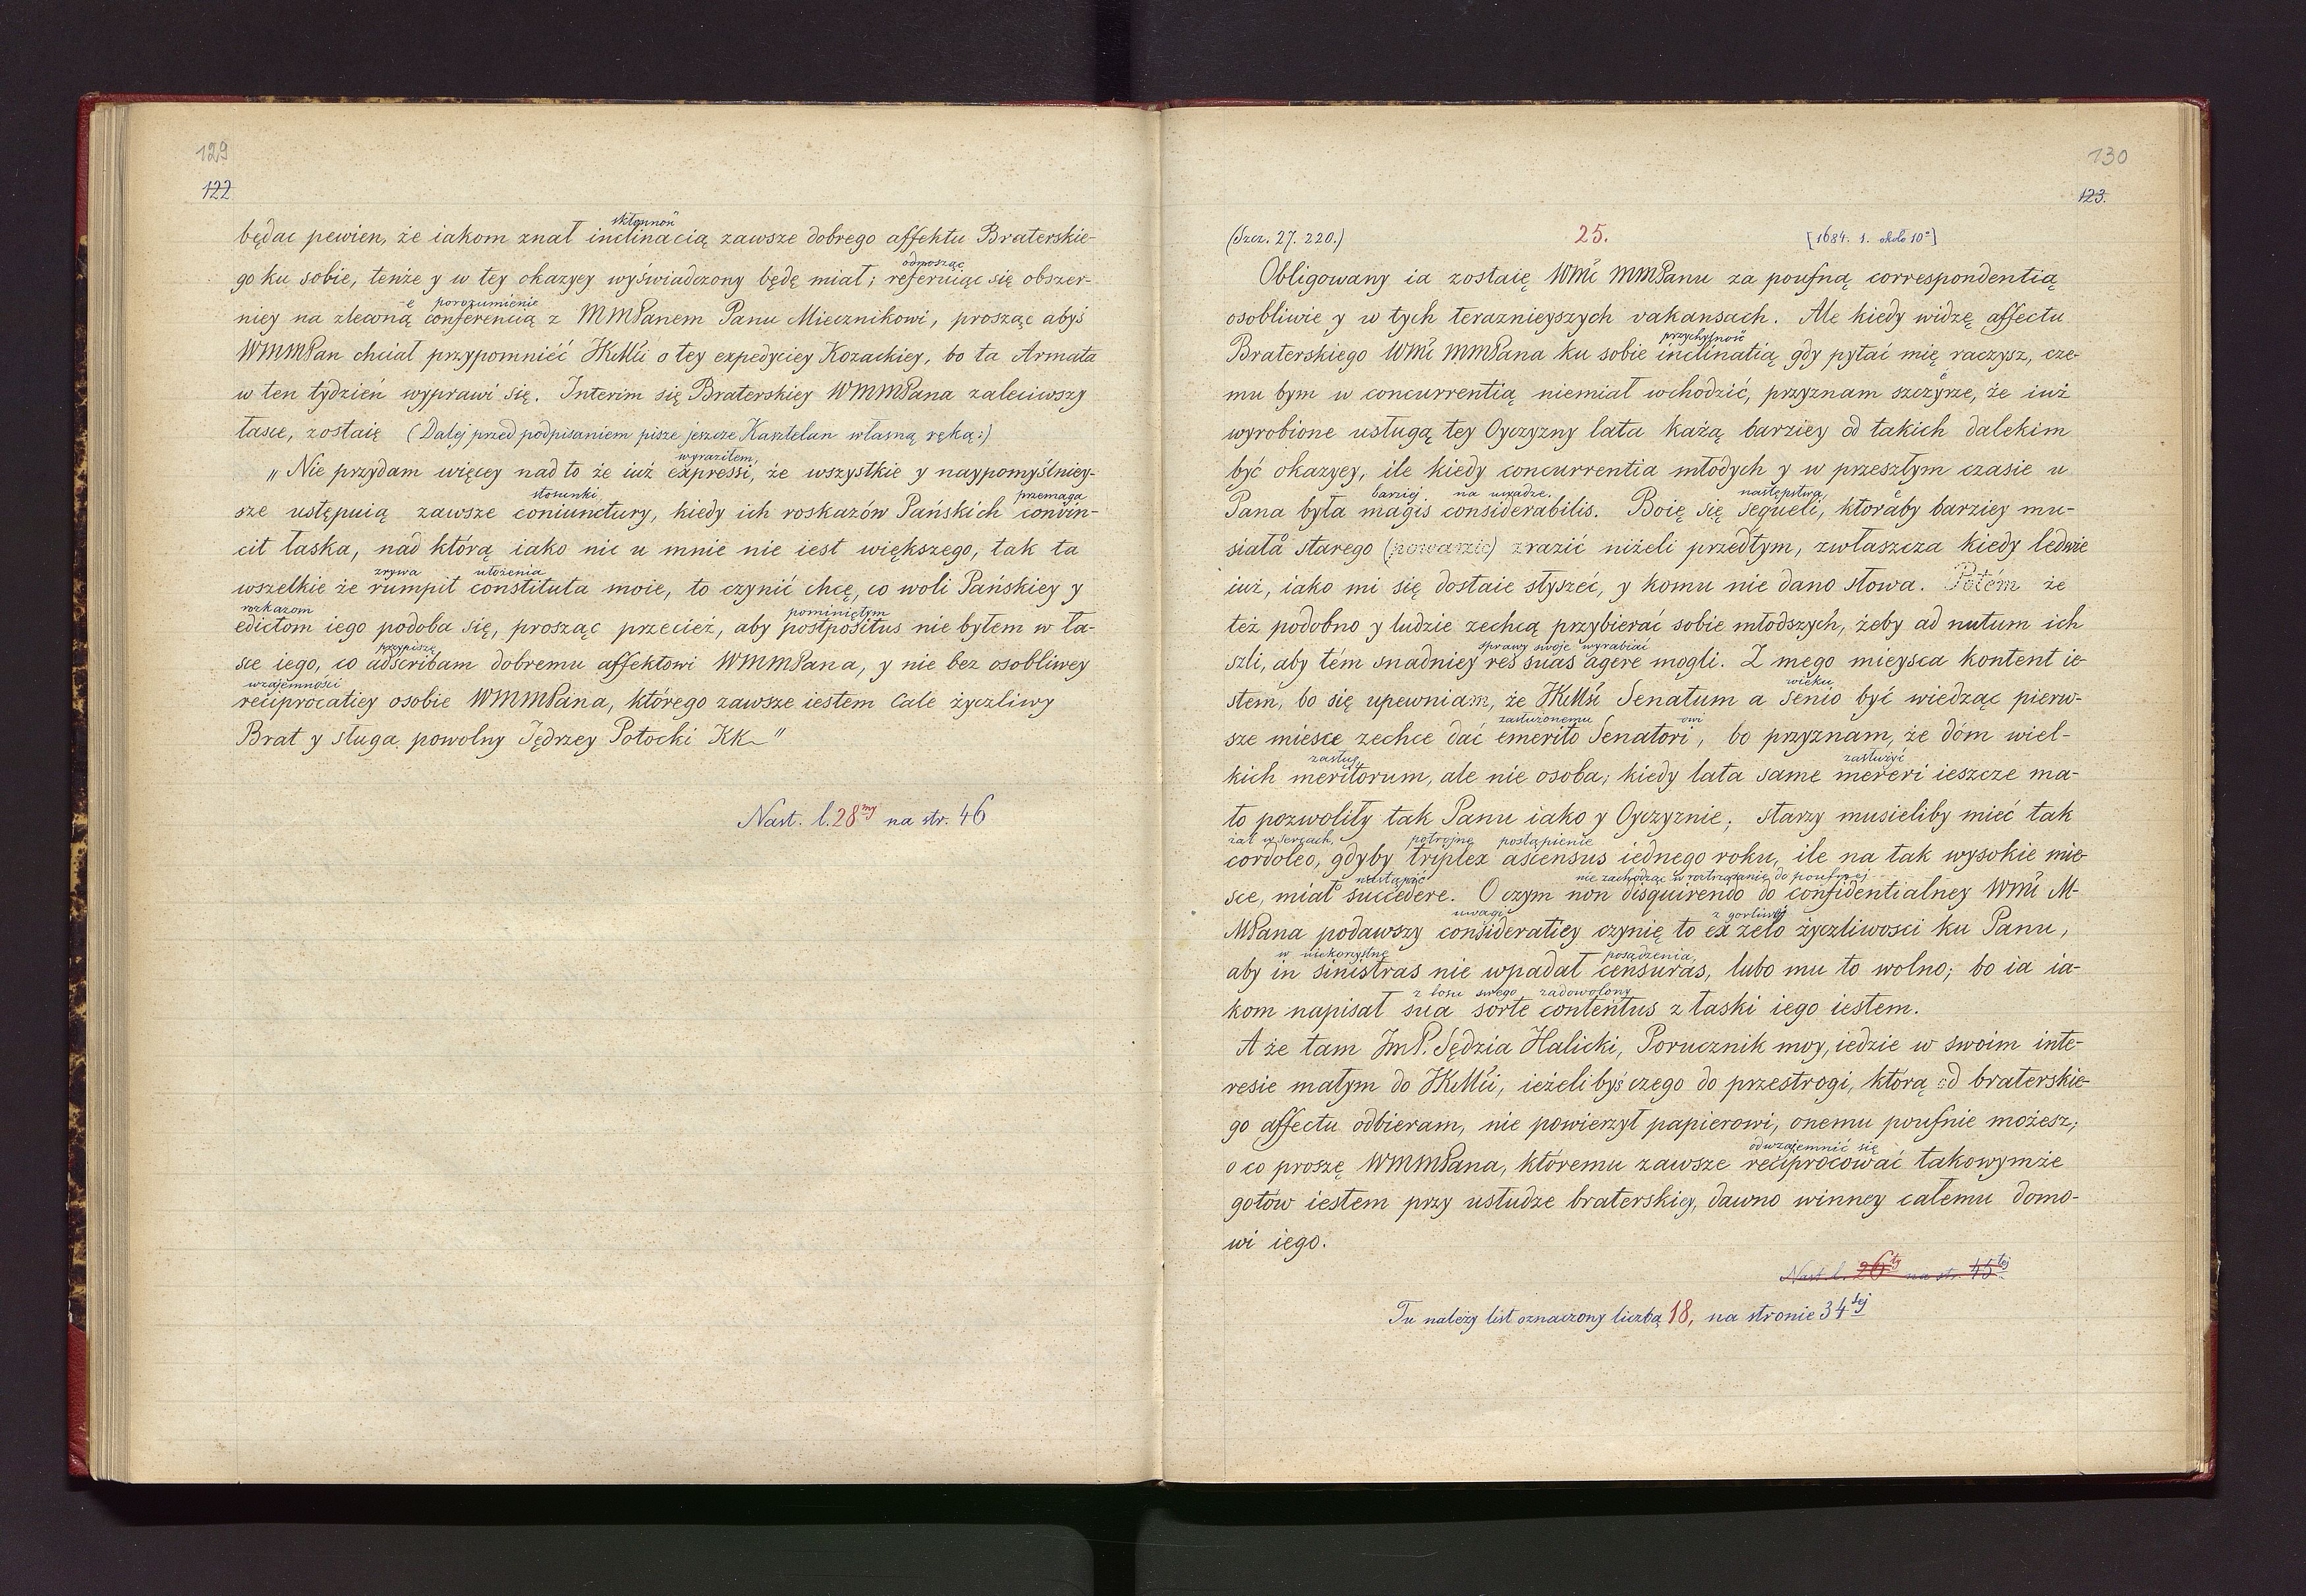 129
122
skłonnoś
będac pewien, że iakom znał inclinacią zawsze dobrego affektu Braterskie-
odnosząc
go ku sobie, tenże y w tey okazyey wyświadczony będę miał; referuiąc się obszer-
-e porozumienie
niey na zlewną conferencią z MMPanem Panu Miecznikowi, prosząc abyś
WMMPan chciał przypomnieć JKMći o tey expedyciey Kozackiey, bo ta Armata
w ten tydzień wyprawi się. Interim się Braterskiey WMMPana zaleciwszy
łasce, zostaię (Dalej przed podpisaniem pisze jeszcze Kasztelan własną ręką:)
wyraziłem,
„Nie przydam więcey nad to że iuż expressi, że wszystkie y naypomyślniey-
stosunki, przemaga
sze ustępuią zawsze coniunctury, kiedy ich roskazów Pańskich convin-
cit łaska, nad którą iako nic u mnie nie iest większego, tak ta
zrywa ułożenia
wszelkie że rumpit constituta moie, to czynić chcę, co woli Pańskiey y
rozkazom pominiętym
edictom iego podoba się, prosząc przecież, aby postpositus nie byłem w ła-
przypiszę
sce iego, co adscribam dobremu affektowi WMMPana, y nie bez osobliwey
wzajemności
reciprocatiey osobie WMMPana, którego zawsze iestem cale życzliwy
Brat y sługa powolny Jędrzey Potocki KK"
Nast. l. 28my na str. 46
130
123.
(Szcz. 27. 220.) 25. [1684. 1. około 10o]
Obligowany ia zostaię WMći MMPanu za poufną correspondentią
osobliwie y w tych teraznieyszych vakansach. Ale kiedy widzę affectu
przychylność
Braterskiego WMći MMPana ku sobie inclinatią, gdy pytać mię raczysz, cze-
e
mu bym w concurrentią niemiał wchodzić, przyznam szczyrze, że iuż
wyrobione usługą tey Oyczyzny lata każą barziey od takich dalekim
być okazyey, ile kiedy concurrentia młodych y w przeszłym czasie u
barziej na uwadze. następstwa, e
Pana była magis considerabilis. Boię się sequeli, ktoraby barziey mu-
siała starego (powarzic) zrazić niżeli przedtym, zwłaszcza kiedy ledwie
iuż, iako mi się dostaie słyszeć, y komu nie dano słowa. Potém że
też podobno y ludzie zechcą przybierać sobie młodszych, żeby ad nutum ich
sprawy swoje wyrabiać
szli, aby tém snadniey res suas agere mogli. Z mego mieysca kontent ie-
wieku
stem, bo się upewniam, że JKMći Senatum a senio być wiedząc pierw-
zasłużonemu owi
sze miesce zechce dać emerito Senatori, bo przyznam, że dóm wiel-
zasług, zasłużyć
kich meritorum, ale nie osoba; kiedy lata same mereri ieszcze ma-
ło pozwoliły tak Panu iako y Oyczyznie; starzy musieliby mieć tak
żal w sercach, potrojne postąpienie
cordoleo, gdyby triplex ascensus iednego roku, ile na tak wysokie mie-
nastąpić nie zachodząc w roztrząsanie do poufnej
sce, miał succedere. O czym non disquirendo do confidentialney WMći M-
uwagi z gorliwej
MPana podawszy consideratiey czynię to ex zelo życzliwosci ku Panu,
w niekorzystne posądzenia,
aby in sinistras nie wpadał censuras, lubo mu to wolno; bo ia ia-
z losu swego zadowolony
kom napisał sua sorte contentus z łaski iego iestem.
A że tam JmP. Sędzia Halicki, Porucznik moy, iedzie w swoim inte-
resie małym do JKMći, ieżelibyś czego do przestrogi, którą od braterskie-
go affectu odbieram, nie powierzył papierowi, onemu poufnie możesz;
odwzajemnić się
o co proszę WMMPana, któremu zawsze reciprocować takowymże
gotów iestem przy usłudze braterskiey, dawno winney całemu domo-
wi iego.
Nast. l. 26ty na str. 45tej
Tu należy list oznaczony liczbą 18, na stronie 34tej